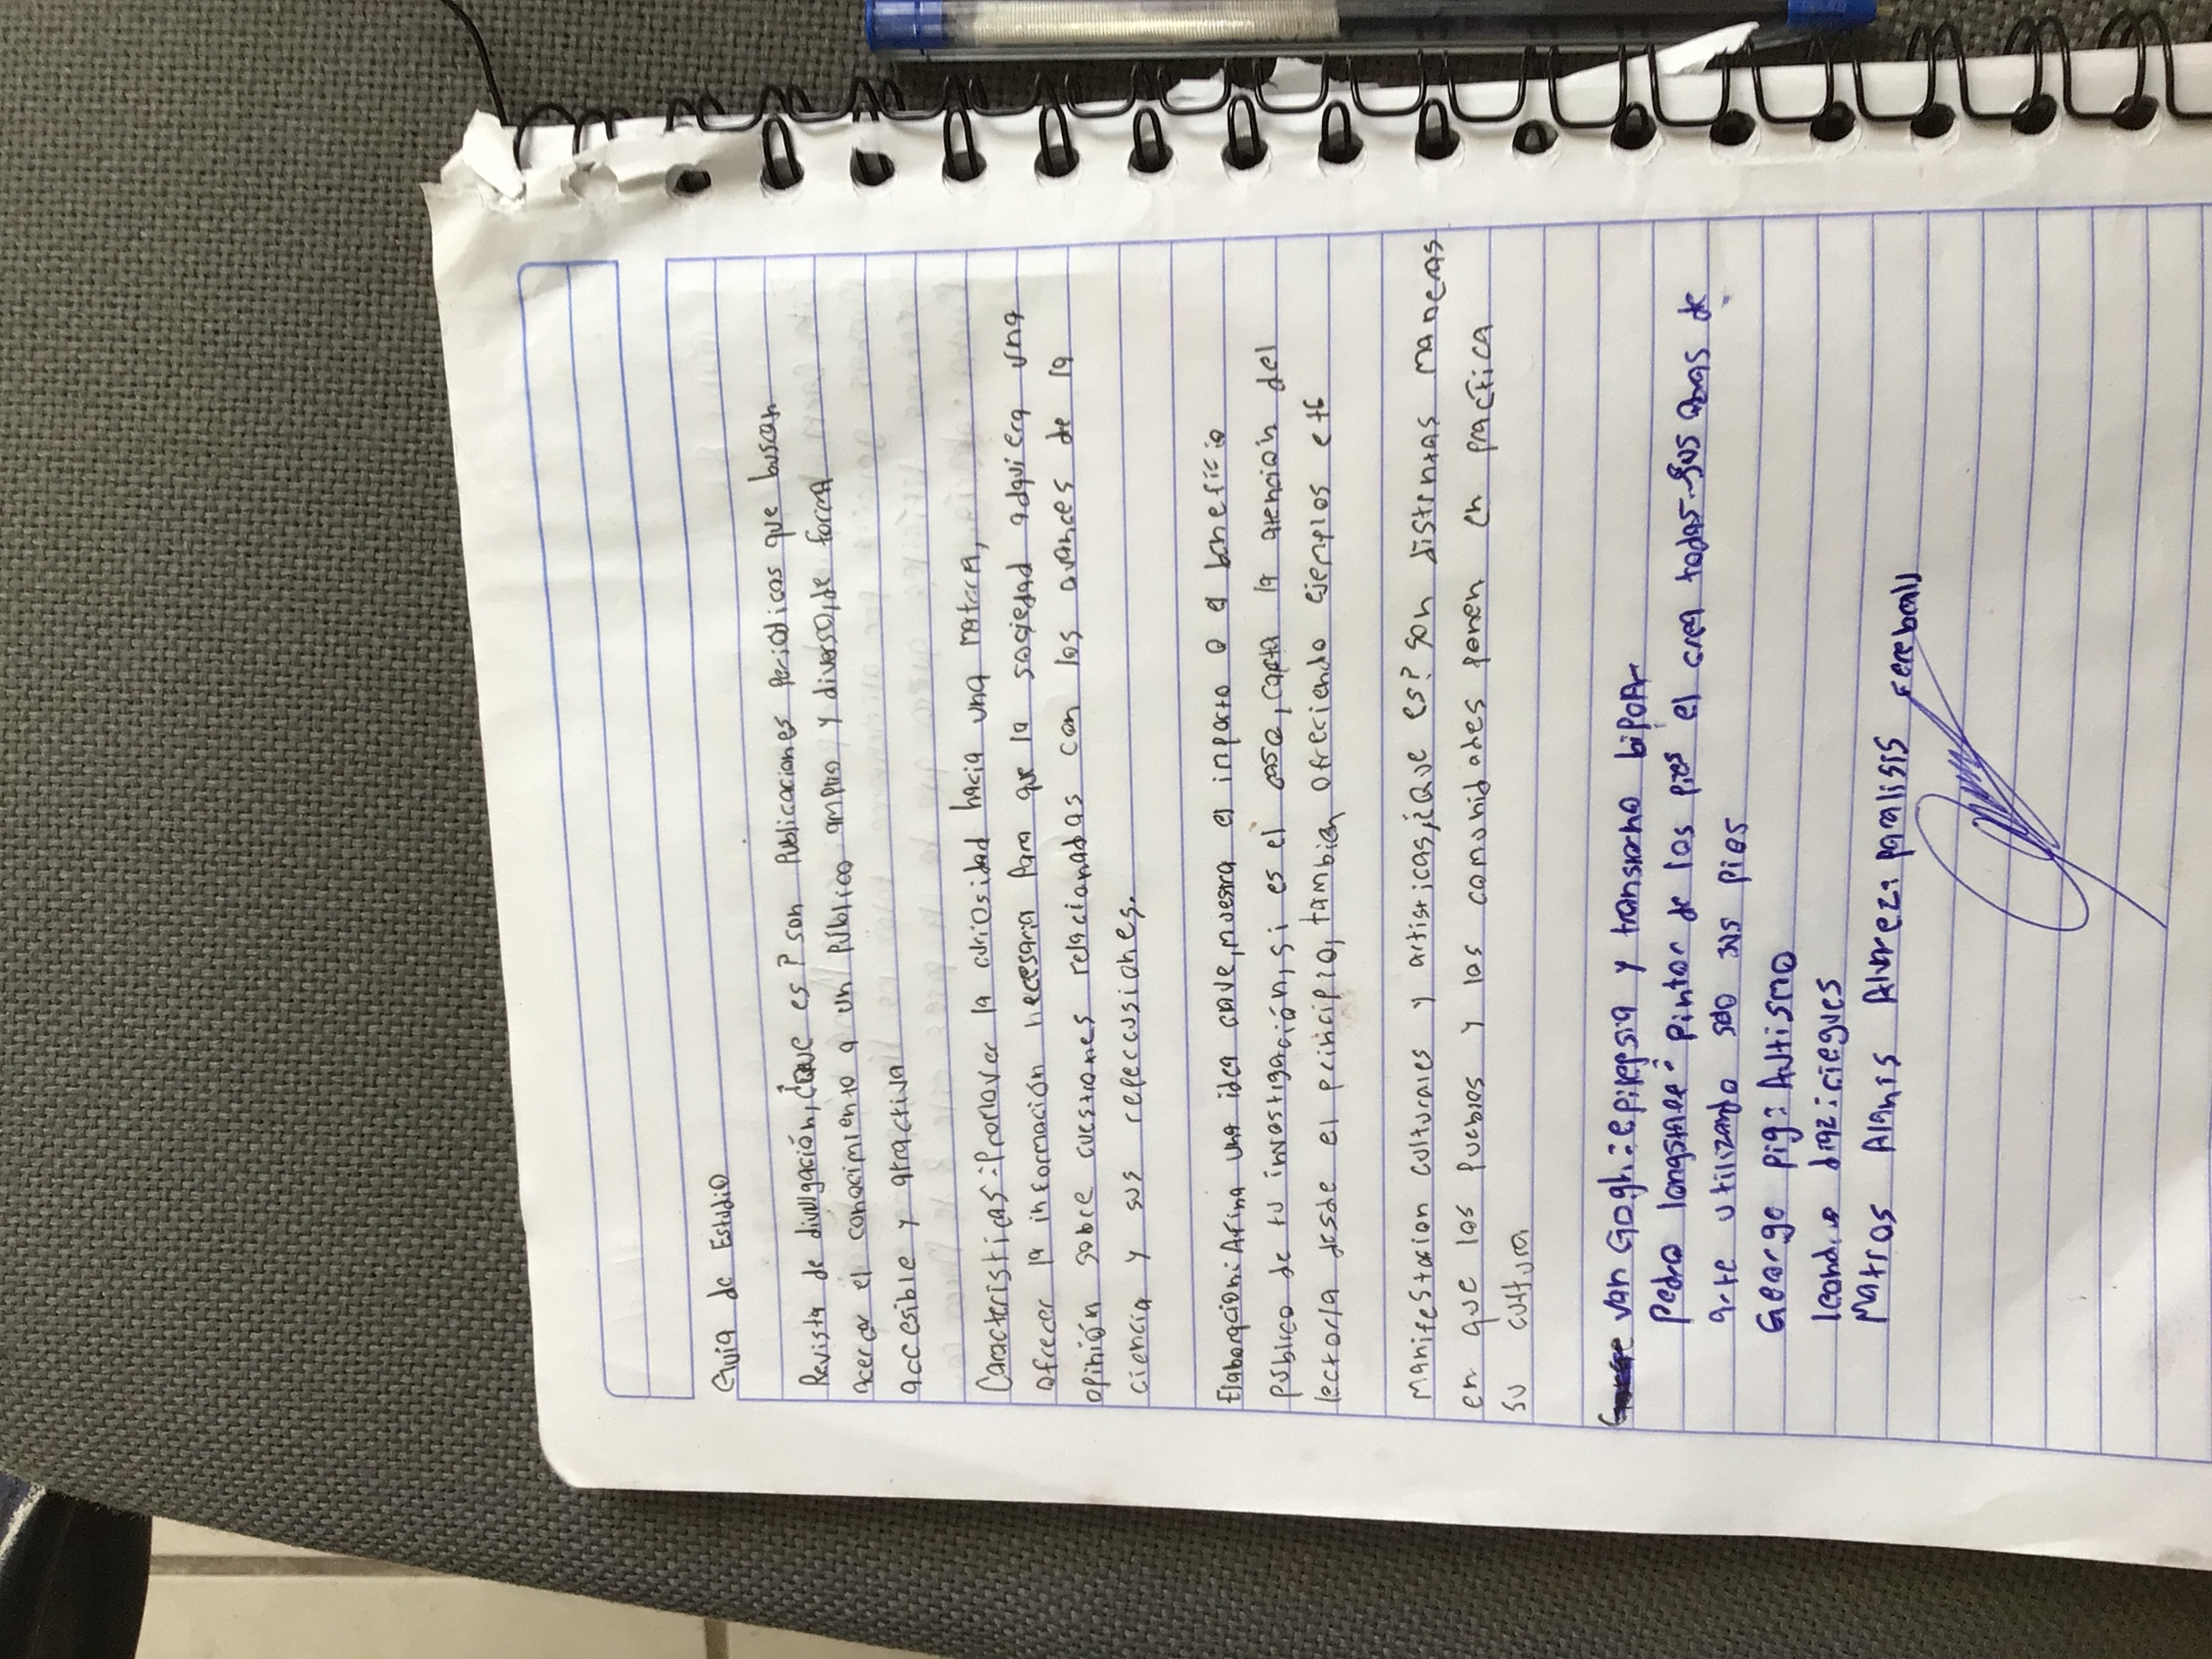 Guia de Estudio
Revista de divulgación, ¿Que es? son Publicaciones Periodicas que buscan
acercar el conocimiento a un Público amplio y diverso, de forma
accesible y atractiva
Caracteristicas: Promover la curiosidad hacia una materia,
ofrecer la información necesaria Para que la sociedad adquiera una
opinión sobre cuestiones relacionadas con los avances de la
ciencia y sus repercusiones.
Elaboracion: Afina una idea clave, muestra el inpacto o el beneficio
público de tu investigación, si es el caso, capta la atención del
lector/a desde el principio, tambien ofreciendo ejemplos etc
Manifestacion culturales y artisticas, ¿Que es? son distintas maneras
en que los Pueblos y las comunidades ponen en practica
su cultura
van Gogh: epilepsia y transtorno bipolar
Pedro longshee: Pintor de los pies el crea todas sus obras de
arte utilizando solo sus pies
George pig: Autismo
leando diaz: ciegues
Matros Alanis Alvarez: paralisis cereball